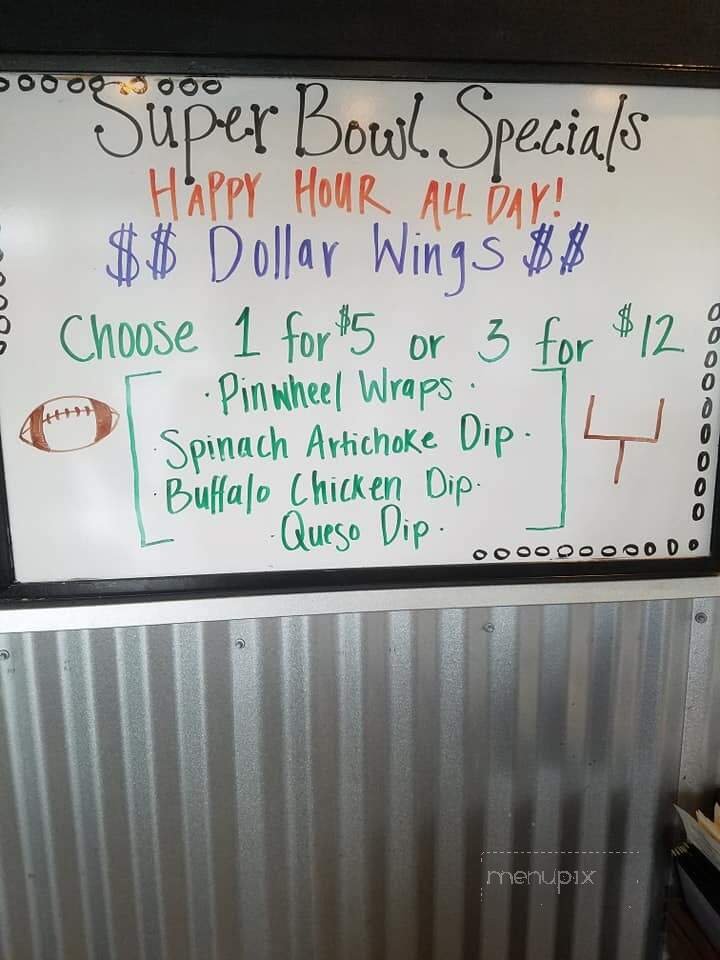 Super Bowl Specials
HAPPY HOUR ALL DAY!
$$ Dollar Wings $$
Choose 1 for $5 or 3 for $12
· Pinwheel Wraps ·
· Spinach Artichoke Dip ·
· Buffalo Chicken Dip ·
· Queso Dip ·
menupix